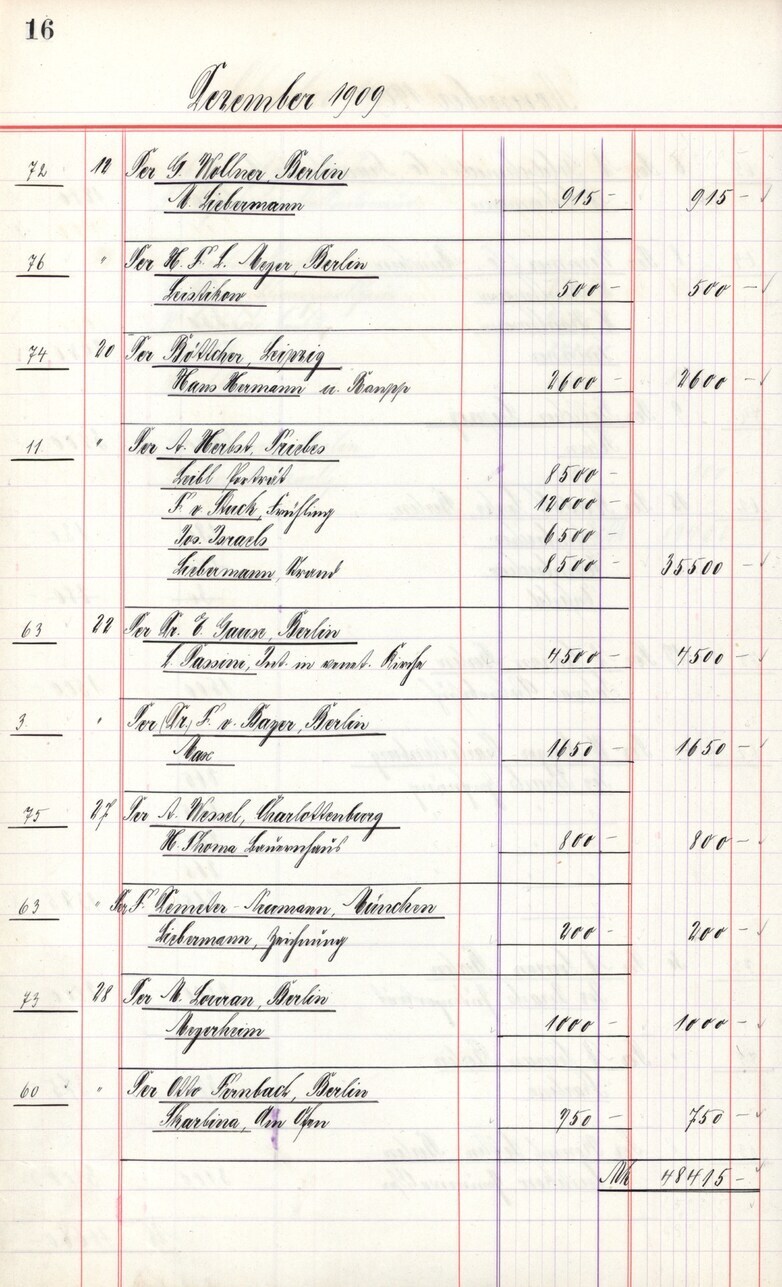 16
Dezember 1909
72 12 Per G. Kollner Berlin
M. Liebermann 915 – 915 –
76 " Per H. F. L. Meyer, Berlin
Leistikow 500 – 500 –
74 20 Per Böttcher, Leipzig
Hans Hermann u. Raupp 2600 – 2600 –
11 " Per A. Herbst, Triebes
Leibl Porträt 8500 –
F. v. Stuck, Frühling 12000 –
Jos. Israels 6500 –
Liebermann, Strand 8500 – 35500 –
63 22 Per Dr. E. Gause, Berlin
L. Passini, Int. in venet. Kirche 4500 – 4500 –
3 " Per (Dr.) F. v. Bayer, Berlin
Max 1650 1650 –
75 27 Per A. Wessel, Charlottenburg
H. Thoma Bauernhaus 800 – 800 –
63 " Per F. Demeter-Neumann, München
Liebermann, Zeichnung 200 – 200 –
73 28 Per M. Berlin
Meyerheim 1000 – 1000 –
60 " Per Otto Fernbach, Berlin
Skarbina, Am Ofen 750 – 750 –
Mk 48415 –